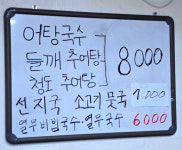 어탕국수
들깨 추어탕 8000
청도 추어탕
선지국 소고기국 7.000
열무비빔국수.열무국수 6000